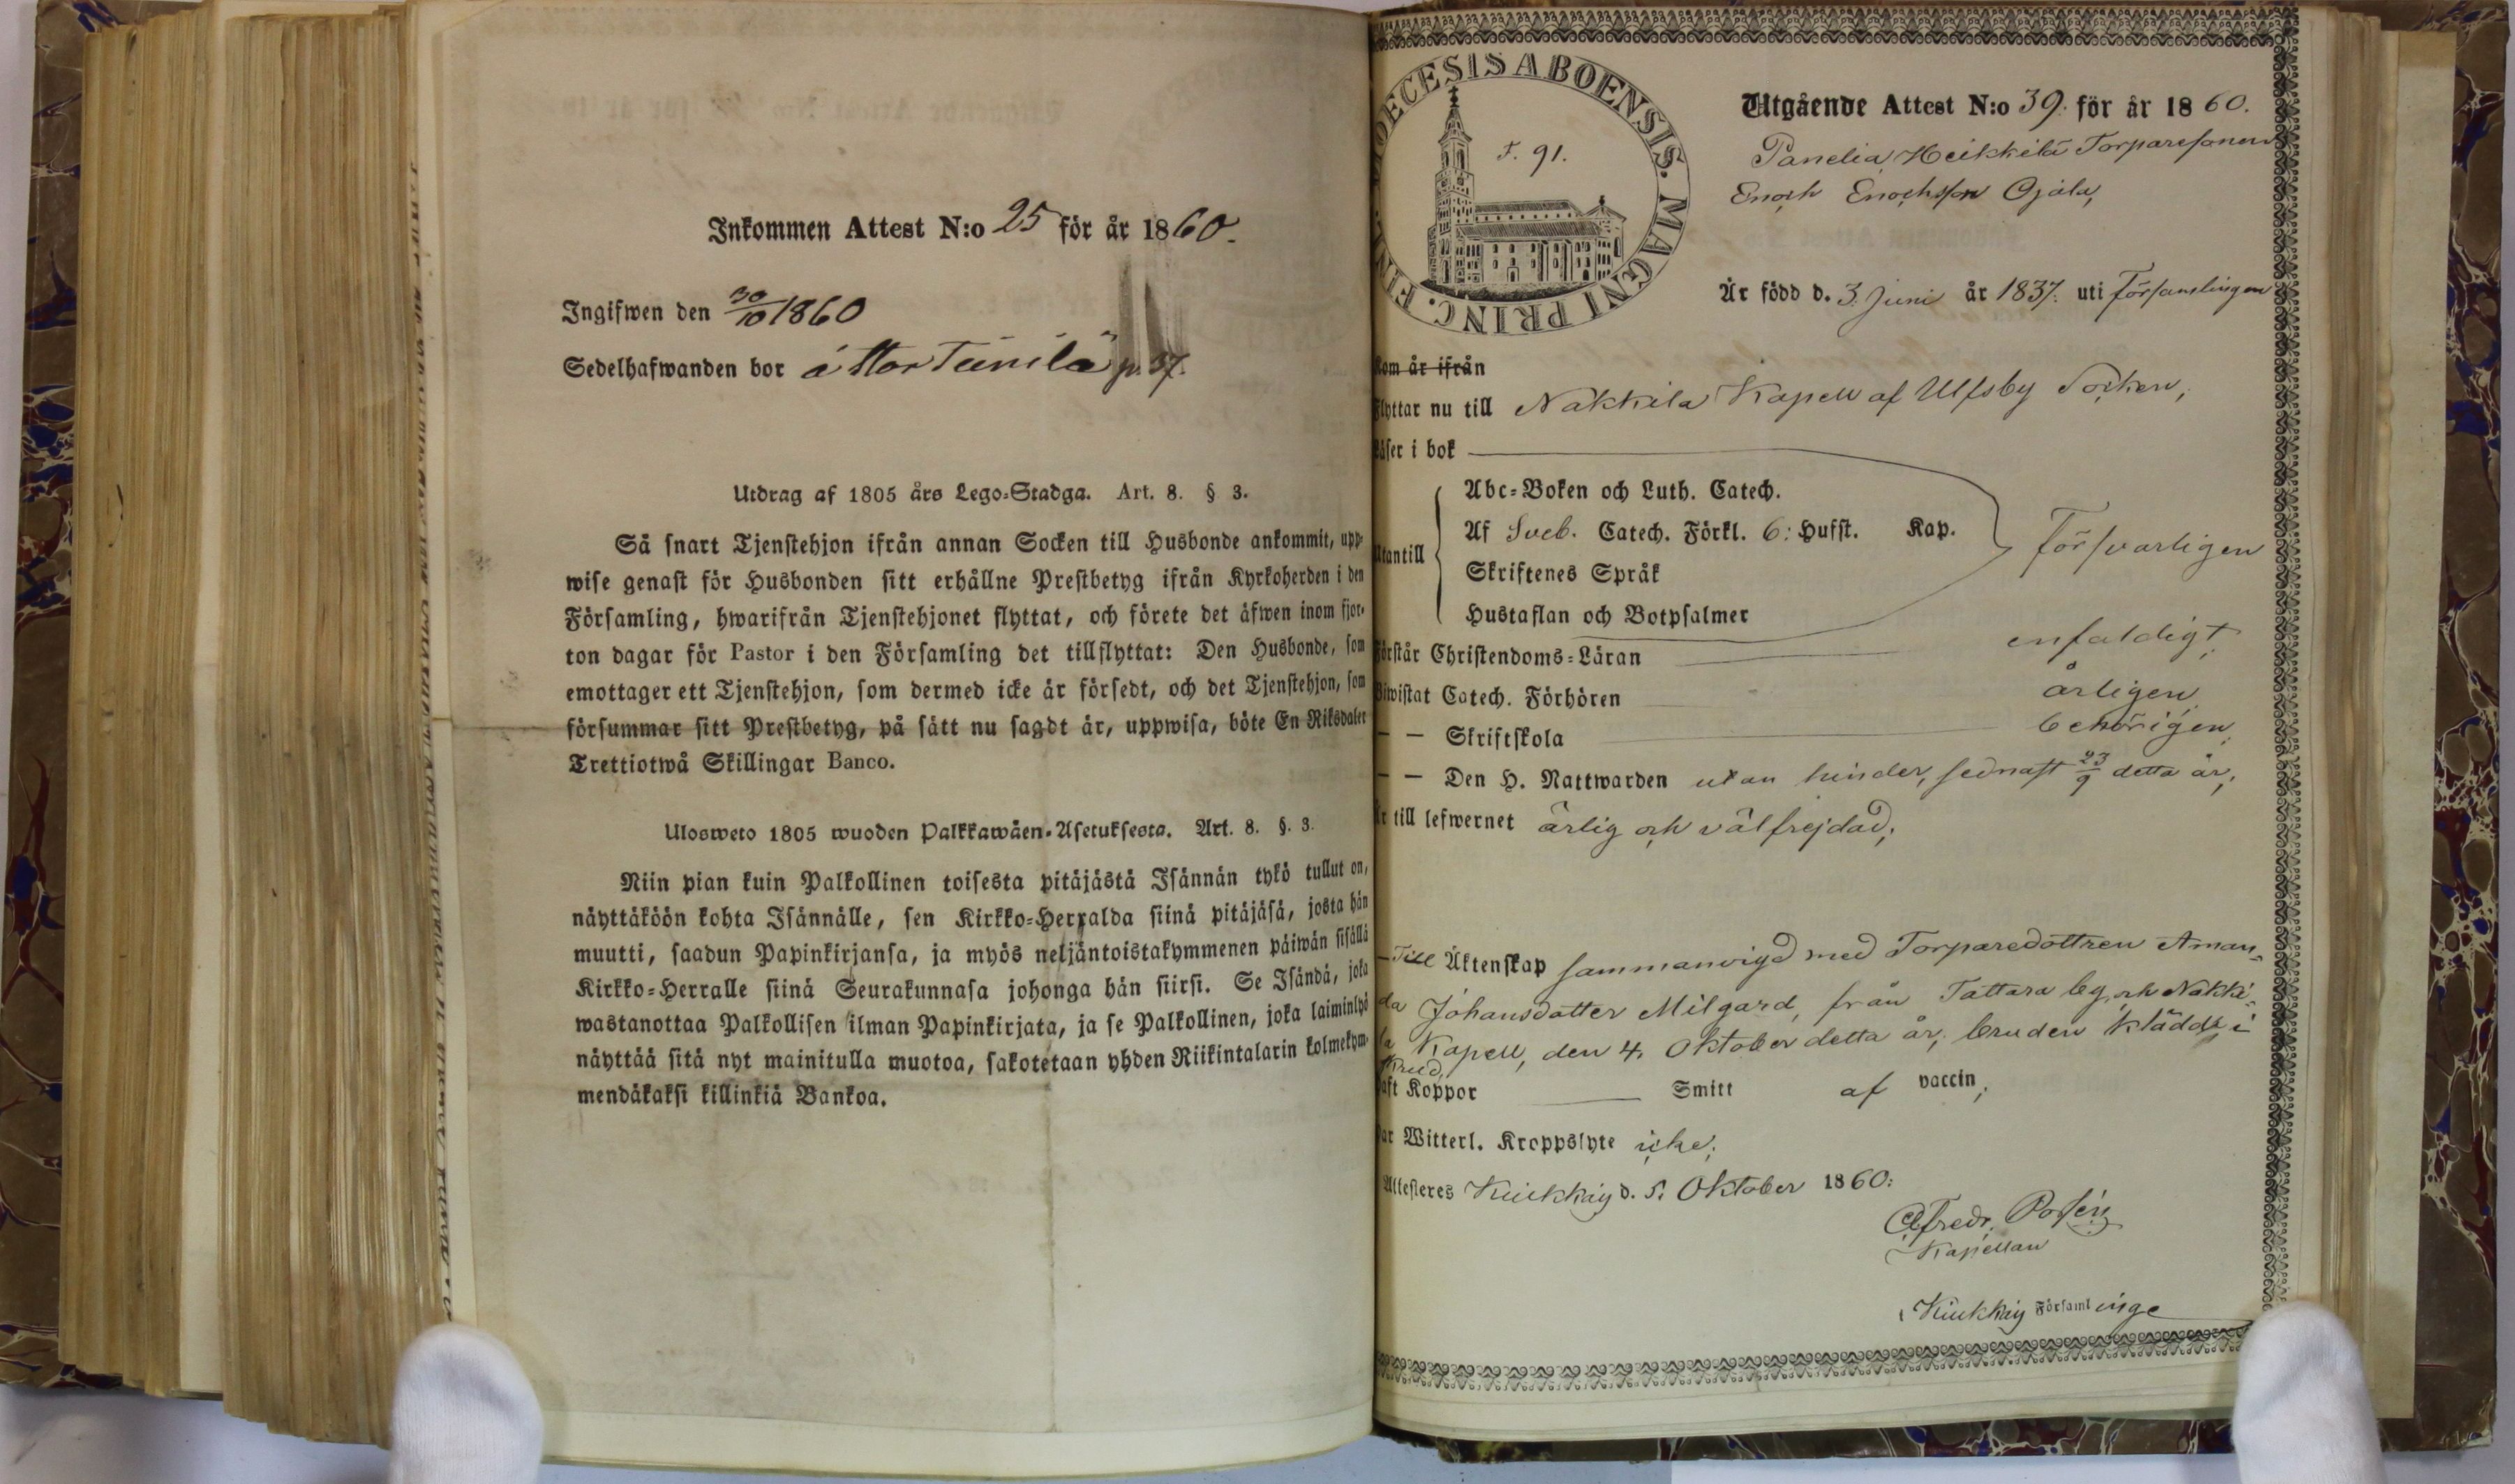 Inkommen Attest N:o 25 för år 1860.
Ingifwen den 30/10 1860
Sedelhafwanden bor å Stor Tunila p. 37.
Utdrag af 1805 års Lego-Stadga. Art. 8. § 3.
Så snart Tjenstehjon ifrån annan Socken till Husbonde ankommit, upp-
wise genast för Husbonden sitt erhållne Prestbetyg ifrån Kyrkoherden i den
Församling, hwarifrån Tjenstehjonet flyttat, och förete det äfwen inom fjor-
ton dagar för Pastor i den Församling det tillflyttat: Den Husbonde, som
emottager ett Tjenstehjon, som dermed icke är försedt, och det Tjenstehjon, som
försummar sitt Prestbetyg, på sätt nu sagdt är, uppwisa, böte En Riksdaler
Trettiotwå Skillingar Banco.
Ulosweto 1805 wuoden Palkkawäen-Asetuksesta. Art. 8. §. 3.
Niin pian kuin Palkollinen toisesta pitäjästä Isännän tykö tullut on,
näyttäköön kohta Isännälle, sen Kirkko-Herralda siinä pitäjäsä, josta hän
muutti, saadun Papinkirjansa, ja myös neljäntoistakymmenen päiwän sisällä
Kirkko-Herralle siinä Seurakunnasa johonga hän siirsi. Se Isändä, joka
wastanottaa Palkollisen ilman Papinkirjata, ja se Palkollinen, joka laiminlyö
näyttää sitä nyt mainitulla muotoa, sakotetaan yhden Riikintalarin kolmekym-
mendäkaksi killinkiä Bankoa.
DIOECESIS ABOENSIS. MAGNI PRINC. FINL.
F. 91.
Utgående Attest N:o 39. för år 1860.
Panelia Heikkilä Torparesonen
Enoch Enochsson Ojala,
Är född d. 3 Juni år 1837. uti Församlingen
kom år ifrån
Flyttar nu till Nakkila Kapell af Ulfsby Socken,
Läser i bok
Abc-Boken och Luth. Catech.
Utantill Af Sveb. Catech. Förkl. 6: Hufst. Kap. Försvarligen
Skriftenes Språk
Hustaflan och Botpsalmer
Förstår Christendoms-Läran enfaldigt,
Biwistat Catech. Förhören årligen
— — Skriftskola behörigen,
— — Den H. Nattwarden utan hinder, sednast 23/9 detta år,
Är till lefwernet ärlig och välfrejdad,
— Till Äktenskap sammanvigd med Torparedottren Aman-
da Johansdotter Milgard, från Tattara by och Nakki-
la Kapell, den 4. Oktober detta år, bruden klädde i
skrud,
Haft Koppor — Smitt af vaccin,
Har Witterl. Kroppslyte icke,
Attesteres Kiukkais d. 5. Oktober 1860:
Alfredr. Posén
Kapellan
i Kiukkais Församlinge